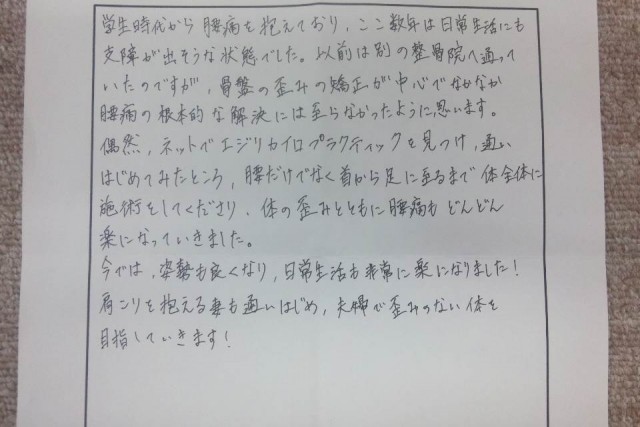 学生時代から腰痛を抱えており、ここ数年は日常生活にも
支障が出そうな状態でした。以前は別の整骨院へ通って
いたのですが、骨盤の歪みの矯正が中心でなかなか
腰痛の根本的な解決には至らなかったように思います。
偶然、ネットでエジリカイロプラクティックを見つけ、通い
はじめてみたところ、腰だけでなく首から足に至るまで体全体に
施術をしてくださり、体の歪みとともに腰痛もどんどん
楽になっていきました。
今では、姿勢も良くなり、日常生活も非常に楽になりました!
肩こりを抱える妻も通いはじめ、夫婦で歪みのない体を
目指していきます!